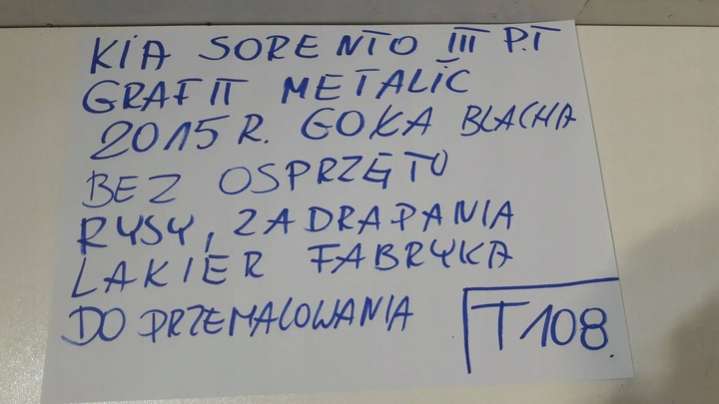 KIA SORENTO III P.T
GRAFIT METALIC
2015 R. GOKA BLACHA
BEZ OSPRZĘTU
RYSY, ZADRAPANIA
LAKIER FABRYKA
DO PRZEMALOWANIA
T108